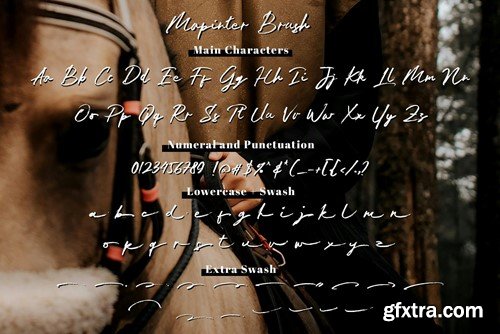 Mopinter Brush
Main Characters
Aa Bb Cc Dd Ee Ff Gg Hh Ii Jj Kk Ll Mm Nn
Oo Pp Qq Rr Ss Tt Uu Vv Ww Xx Yy Zz
Numeral and Punctuation
0123456789 !@#$%^&*(_-+[{</.,?
Lowercase + Swash
a b c d e f g h i j k l m n
o p q r s t u v w x y z
Extra Swash
gfxtra.com